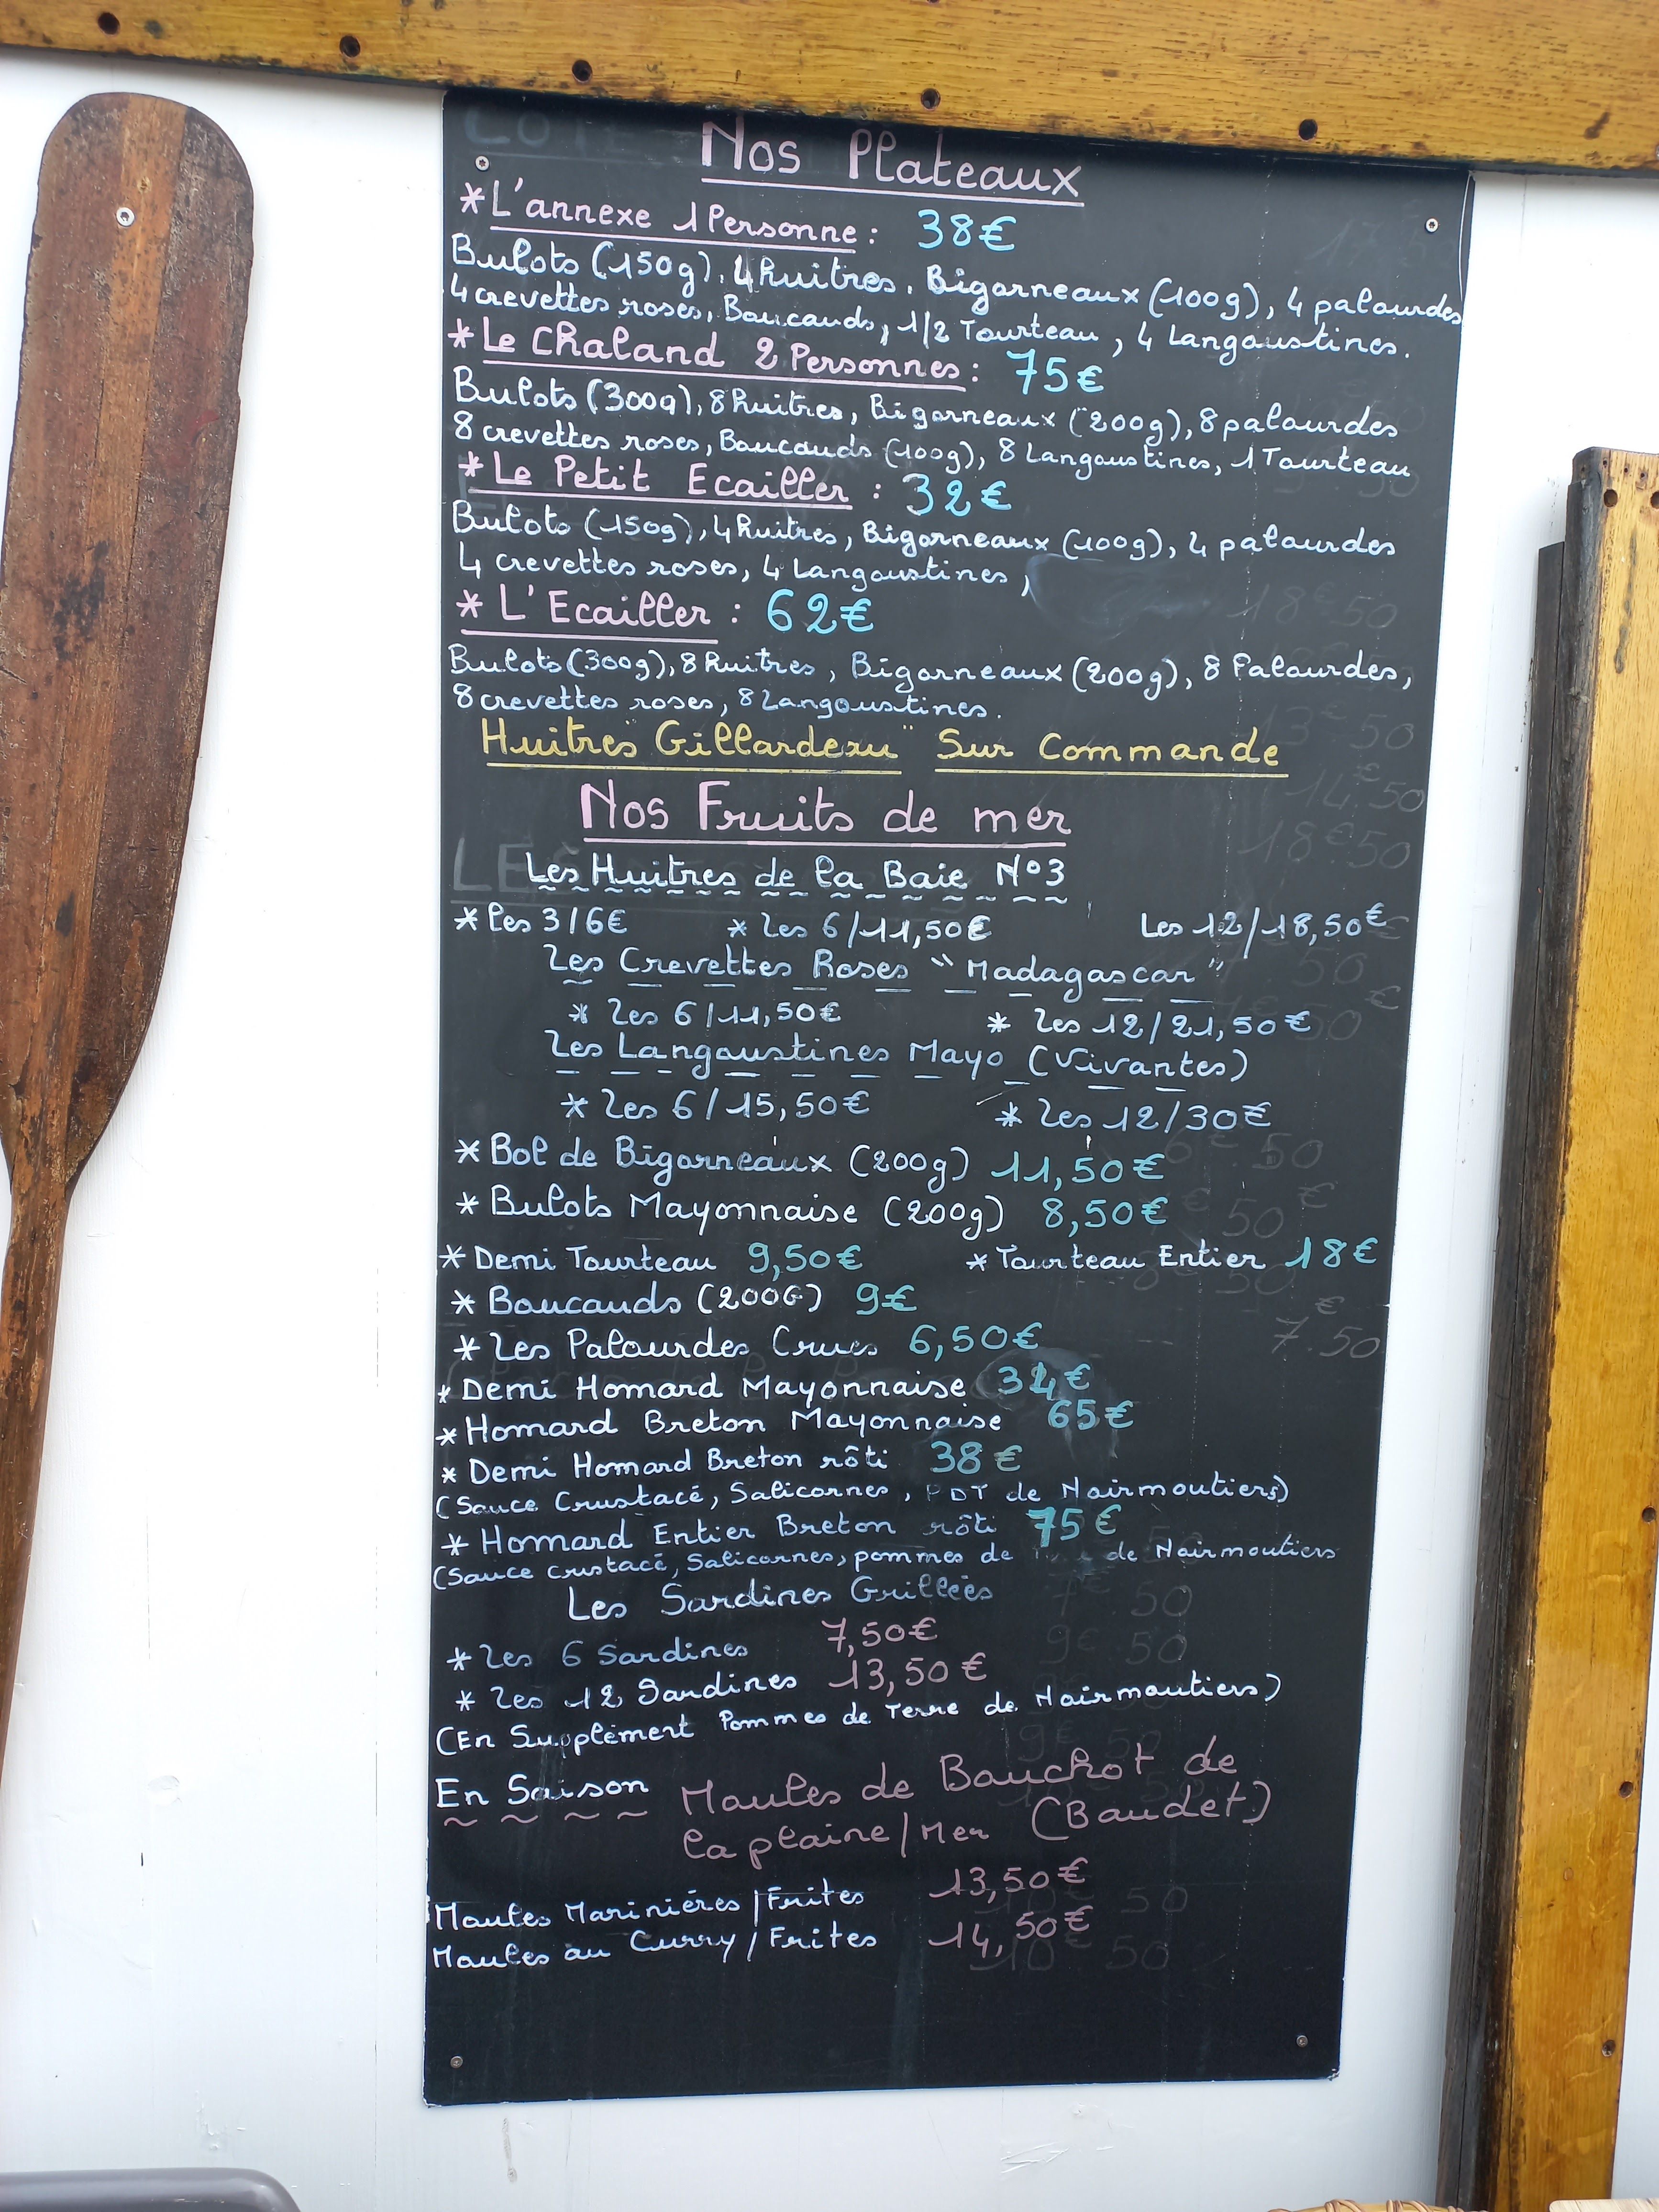 Nos Plateaux
*L'annexe 1 Personne : 38€
Bulots (150g), 4 huitres, Bigorneaux (100g), 4 palourdes
4 crevettes roses, Boucauds, 1/2 Tourteau, 4 Langoustines.
*Le Chaland 2 Personnes : 75€
Bulots (300g), 8 huitres, Bigorneaux (200g), 8 palourdes
8 crevettes roses, Boucauds (100g), 8 Langoustines, 1 Tourteau
*Le Petit Ecailler : 32€
Bulots (150g), 4 huitres, Bigorneaux (100g), 4 palourdes
4 crevettes roses, 4 Langoustines,
* L'Ecailler : 62€
Bulots (300g), 8 huitres, Bigorneaux (200g), 8 Palourdes,
8 crevettes roses, 8 Langoustines.
Huitres "Gillardeau" Sur Commande
Nos Fruits de mer
Les Huitres de la Baie N°3
* les 3/6€ * Les 6/11,50€ Les 12/18,50€
Les Crevettes Roses "Madagascar"
* Les 6/11,50€ * Les 12/21,50€
Les Langoustines Mayo (Vivantes)
* Les 6/15,50€ * Les 12/30€
* Bol de Bigorneaux (200g) 11,50€
* Bulots Mayonnaise (200g) 8,50€
* Demi Tourteau 9,50€ * Tourteau Entier 18€
* Boucauds (200G) 9€
* Les Palourdes Crues 6,50€
* Demi Homard Mayonnaise 34€
* Homard Breton Mayonnaise 65€
* Demi Homard Breton rôti 38€
(Sauce Crustacé, Salicornes, PDT de Noirmoutiers)
* Homard Entier Breton rôti 75€
(Sauce crustacé, Salicornes, pommes de de Noirmoutiers
Les Sardines Grillées
* Les 6 Sardines 7,50€
* Les 12 Sardines 13,50€
(En Supplément Pommes de Terre de Noirmoutiers)
En Saison Moules de Bouchot de
la plaine/Mer (Baudet)
Moules Marinières/Frites 13,50€
Moules au Curry/Frites 14,50€